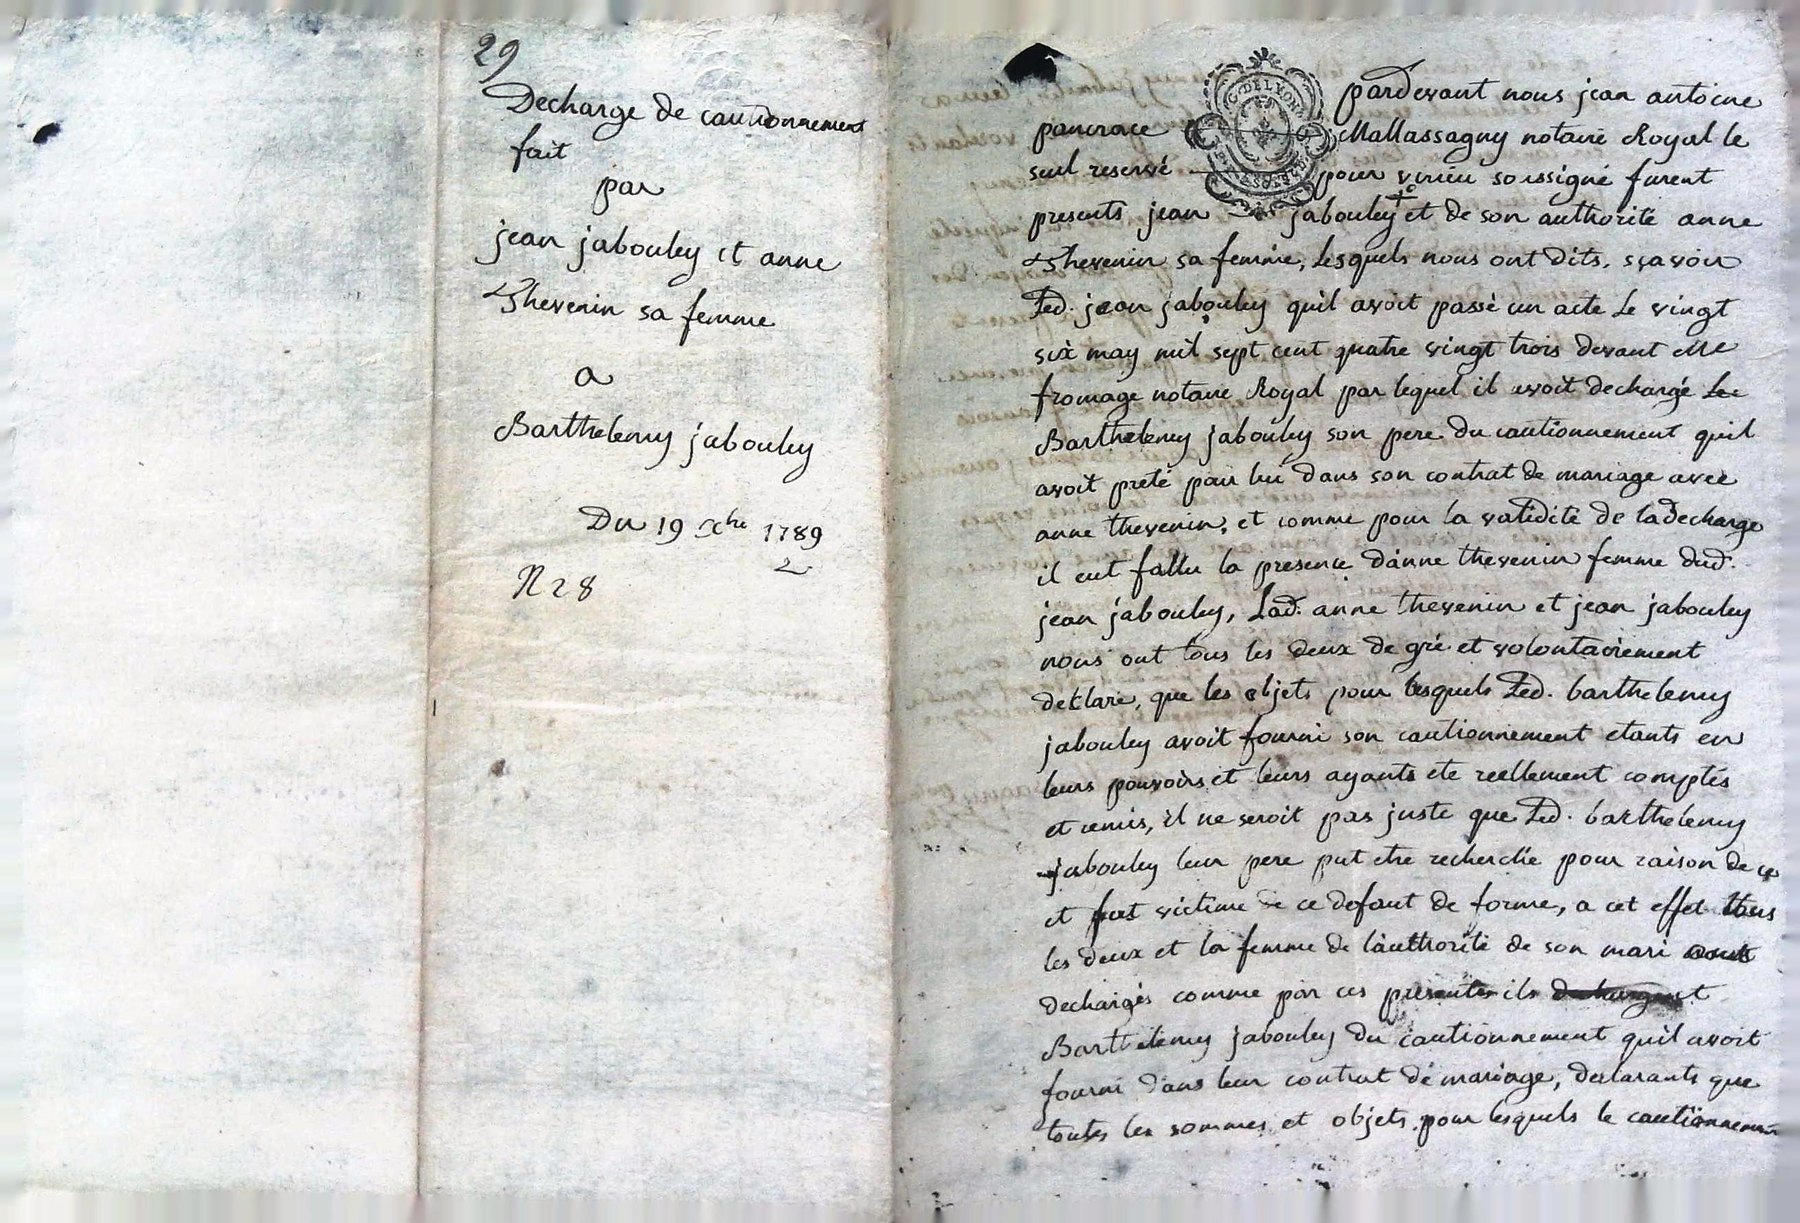 29
Decharge de cautionnement
fait
par
jean jabouley et anne
Thevenin sa femme
a
Barthelemy jabouley
Du 19 xbre 1789
2
N 28
G. DE LYON
pardevant nous jean antoine
pancrace Mallassagny notaire Royal le
seul reservé pour virieu soussigné furent
presents jean jabouley et de son authorité anne
Thevenin sa femme, Lesquels nous ont dits, sçavoir
Led. jean jabouley quil avoit passé un acte Le vingt
six may mil sept cent quatre vingt trois devant Me
fromage notaire Royal par lequel il avoit dechargé
Barthelemy jabouley son pere du cautionnement quil
avoit preté pour lui dans son contrat de mariage avec
anne thevenin, et comme pour la validité de ladecharge
il eut fallu la presence d'anne thevenin femme dud.
jean jabouley, Lad. anne thevenin et jean jabouley
nous ont tous les deux de gré et volontairement
declare, que les objets pour lesquels Led. barthelemy
jabouley avoit fourni son cautionnement etants en
leurs pouvoirs et leurs ayants ete reellement comptés
et remis, il ne seroit pas juste que Led. barthelemy
jabouley leur pere put etre recherché pour raison de ce
et fut victime de ce defaut de forme, a cet effet tous
les deux et la femme de l'authorité de son mari ont
dechargés comme par ces presentes ils dechargent
Barthelemy jabouley du cautionnement quil avoit
fourni dans leur contrat de mariage, declarants que
toutes les sommes et objets pour lesquels le cautionnement